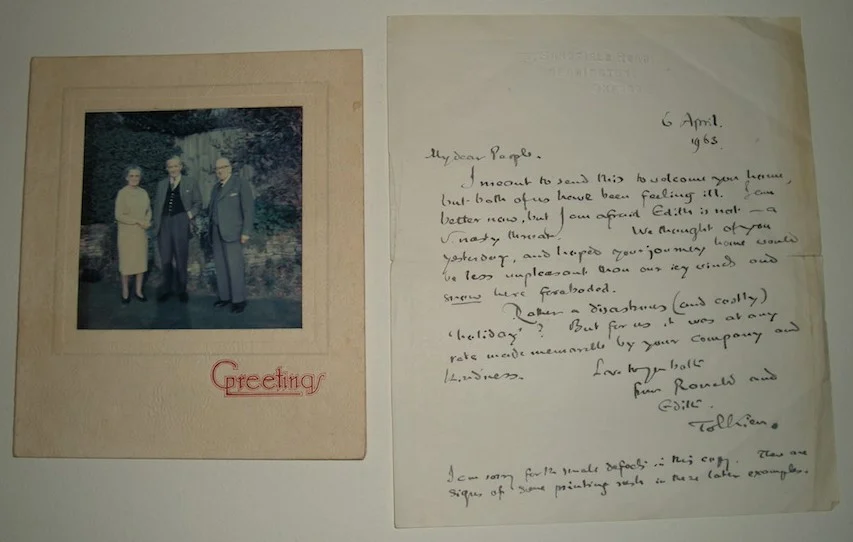 Greetings
6 April.
1963.
My dear People.
I meant to send this to welcome you home,
but both of us have been feeling ill. I am
better now, but I am afraid Edith is not — a
v. nasty throat. We thought of you
yesterday, and hoped your journey home would
be less unpleasant than our icy winds and
snow here foreboded.
Rather a disastrous (and costly)
'holiday'? But for us it was at any
rate made memorable by your company and
kindness. Love to you both
from Ronald and
Edith.
Tolkien.
I am sorry for the small defects in this copy. There are
signs of some printing rush in these later examples.